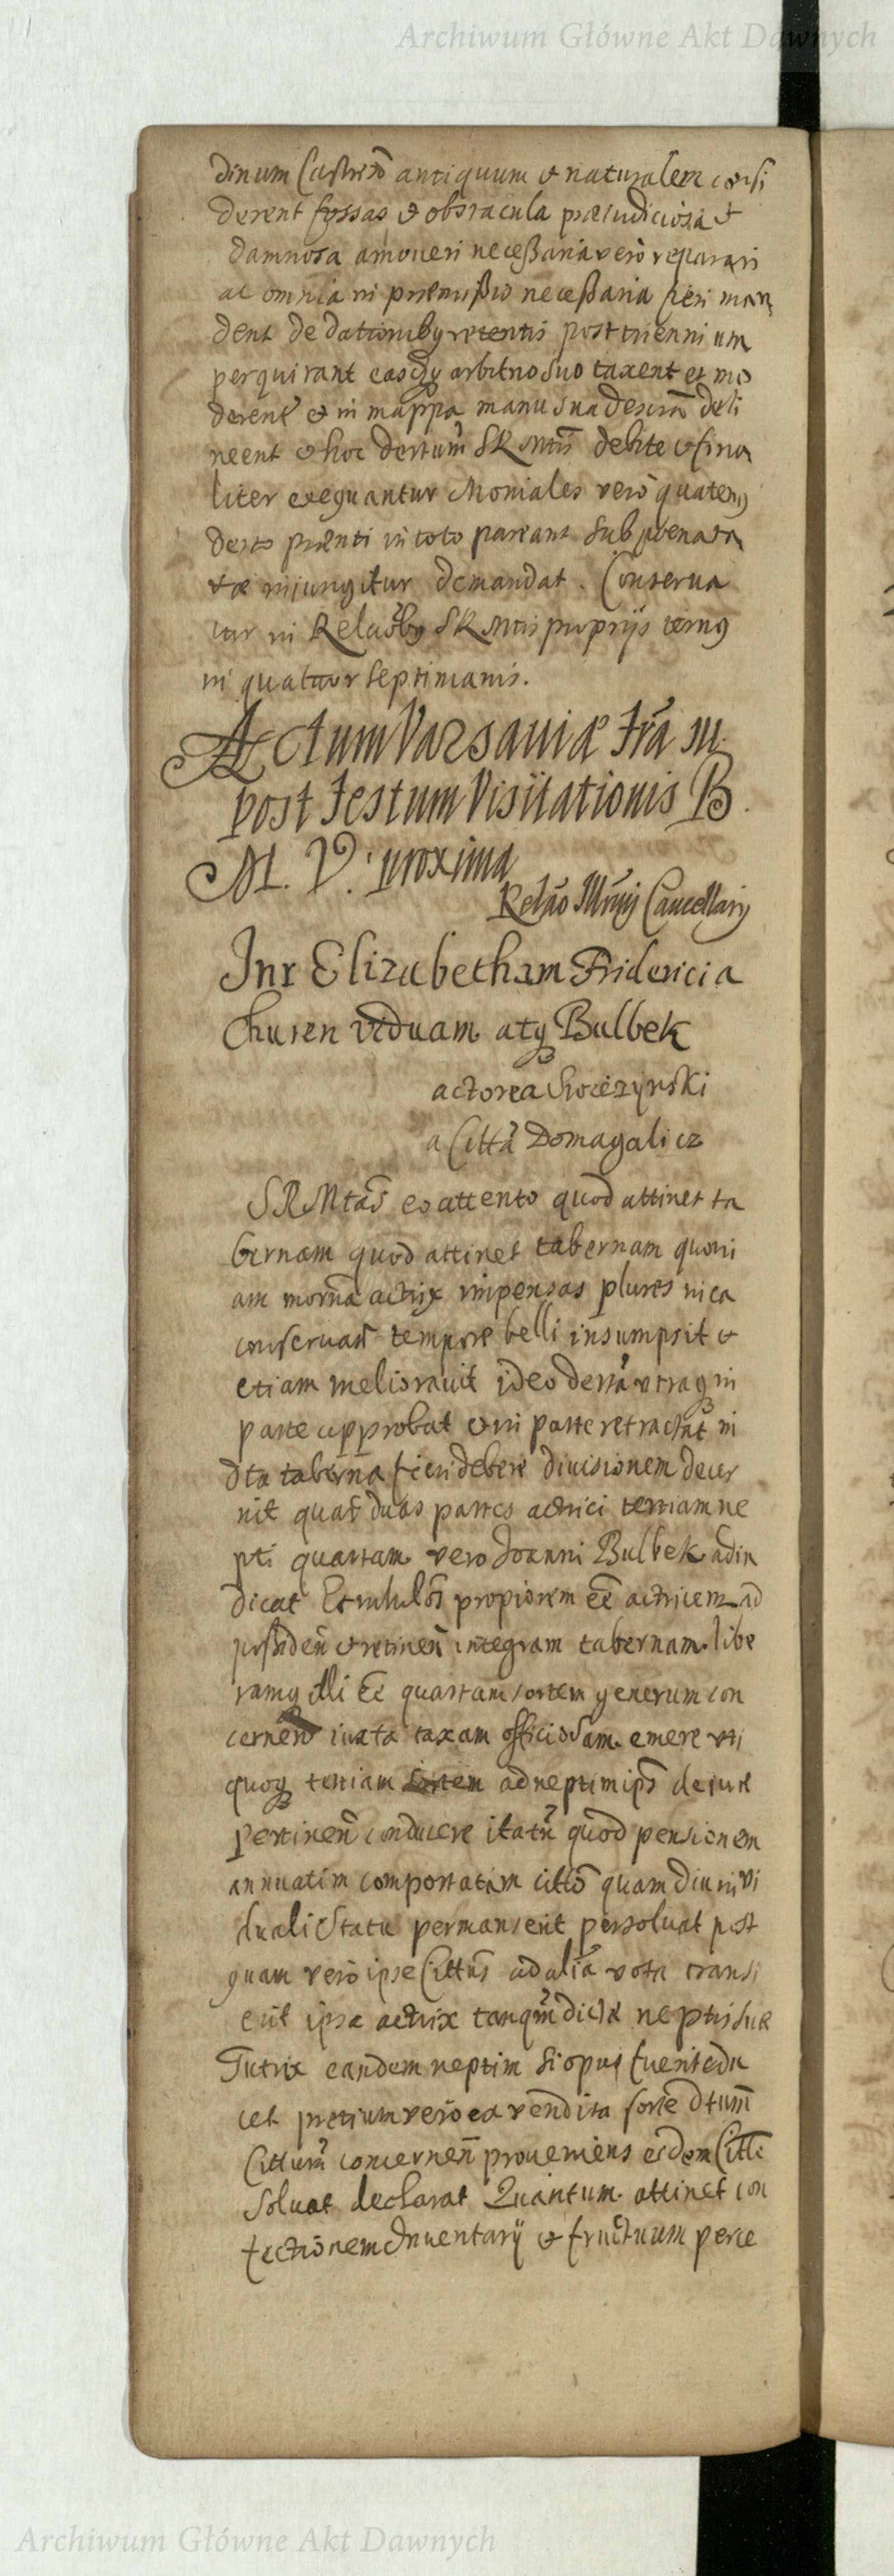 Archiwum Główne Akt Dawnych
dinum Castren antiquum et naturalem consi
derent fossas et obstacula præiudiciosa et
damnosa amoueri necessaria vero reparari
ac omnia in præmissis necessaria fieri man
dent de dationibus retentis post triennium
perquirant easdem arbitrio suo taxent et mo
derent et in mappa manu sua deli
neent et hoc decretum SRMttis debite et fina
liter exequantur Moniales vero quatenus
decreto præsenti in toto pareant sub pœna
injungitur demandat. Conserua
tur in Relaõbus SRMttis proprijs
in quatuor septimanis.
Actum Varsauiæ fria
post festum Visitationis B
M. V. proxima
Relão Illmi Cancellarij
Inr Elizabetham Fridericia
Churen viduam atq Bulbek
actorea
a Cittã Domagalicz
SRMtãs eo attento quod attinet ta
bernam quod attinet tabernam quoni
am actrix impensas plures in ea
conseruañ tempore belli insumpsit et
etiam meliorauit ideo utraq in
parte approbat et in parte retractat in
dta taberna fieri debere diuisionem decer
nit quar duas partes actrici tertiam ne
pti quartam vero Joanni Bulbek adiu
dicat propiorem eẽ actricem ad
possideñ et retineñ integram tabernam libe
ramq illi eẽ quartam sortem generum con
cerneñ iuxta taxam officiosam emere uti
quoq tertiam sortem ad neptim ips de iure
pertineñ conducere ita tñ quod pensionem
annuatim comportatam quam diu in vi
duali statu permanserit persoluat post
quam vero ipse Cittus ad alia vota transi
erit ipsa actrix tanqm dictæ neptis suæ
Tutrix eandem neptim si opus fuerit edu
cet pretium vero ex vendita sorte dtum
Cittum concerneñ proueniens eidem Citto
soluat declarat Quantum attinet con
fectionem Inuentarij et fructuum perce
Archiwum Główne Akt Dawnych